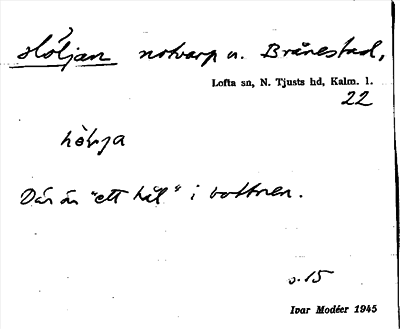 Höljan notvarp u. Brånestad,
Lofta sn, N. Tjusts hd, Kalm. l.
22
Där är "ett hål" i bottnen.
s. 15
Ivar Modéer 1945